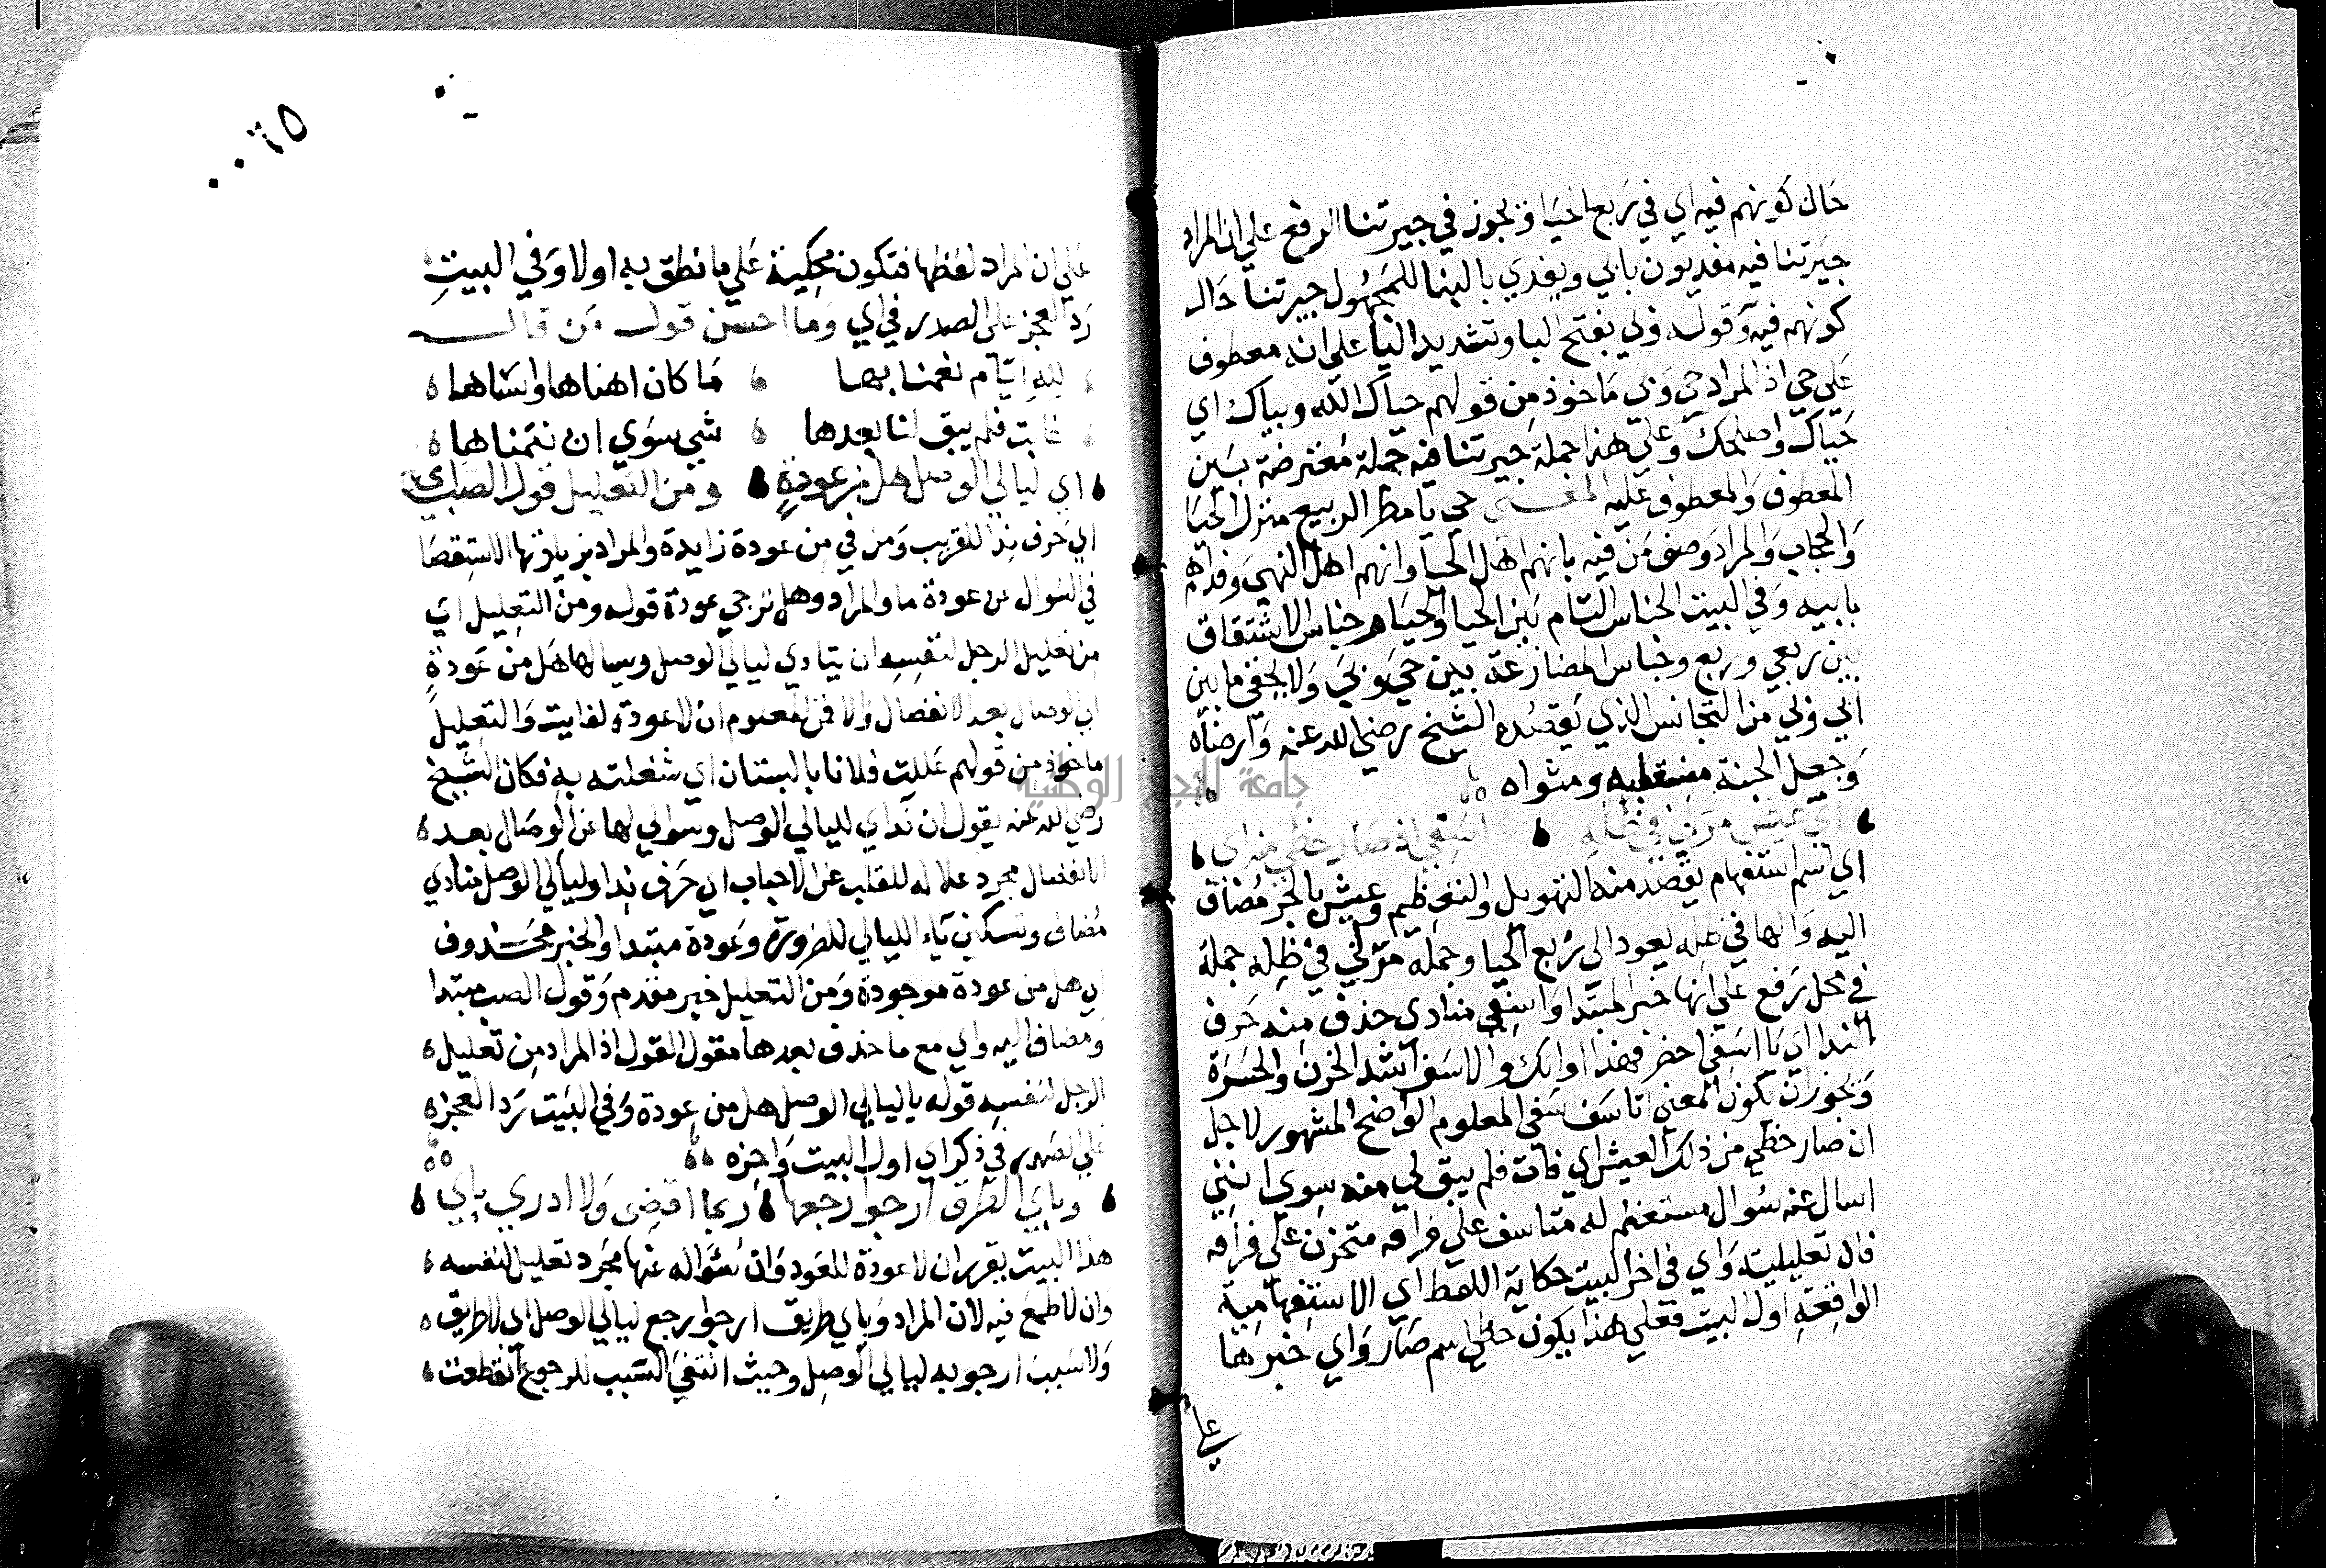 حال كونهم فيه اي في ربع الحيا ويجوز في جيرتنا الرفع علي ان المراد
جيرتنا فيه مفديون بابي ويفدي بالبنا للمجهول جيرتنا حال
كونهم فيه وقوله وبي بفتح البا وتشديد اليا علي انه معطوف
علي حي اذ المراد حي وبي ماخوذ من قولهم حياك الله وبياك اي
حياك واصلحك وعلي هذا جملة جيرتنا فيه جملة معترضة بين
المعطوف والمعطوف عليه المعـنـي حي يا مطر الربيع منزل الحيا
والحجاب والمراد وصف من فيه بانهم اهل الحيا وانهم اهل النهي وفداهم
بابيه وفي البيت الجناس التام بين الحيا والحيا وجناس الاشتقاق
بين ربعي وربع وجناس المضارعة بين حي وبي ولا يخفي ما بين
ابي وبي من التجانس الذي يقصده الشيخ رضي الله عنه وارضاه
وجعل الجنة منقلبه ومثواه
اي عيش مر لي في ظله اسفي اذ صار حظي منه اي
اي اسم استفهام يقصد منه التهويل والتعظيم وعيش بالجر مضاف
اليه والها في ظله يعود الي ربع الحيا وجملة مر لي في ظله جملة
في محل رفع علي انها خبر المبتدا واسفي منادي حذف منه حرف
الندا اي يا اسفي احضر فهذا اوانك والاسف اشد الحزن والحسرة
ويجوز ان يكون المعني اتاسف اسفي المعلوم الواضح المشهور لاجل
ان صار حظي من ذلك العيش اي فات فلم يبق لي منه سوي انني
اسال عنه سوال مستعظم له متاسف علي فراقه متحزن علي فراقه
فاذ تعليلية واي في اخر البيت حكاية اللفظ اي الاستفهامية
الواقعة اول البيت فعلي هذا يكون حظي اسم صار واي خبرها
علي
٠٠٦٥
علي ان المراد لفظها فتكون محكية علي ما نطق به اولا وفي البيت
رد العجز علي الصدر في اي وما احسن قول من قال
لله ايام نعمنا بها ما كان اهناها واسناها
غابت فلم يبق لنا بعدها شي سوي ان نتمناها
اي ليالي الوصل هل من عودة ومن التعليل قول الصب اي
اي حرف ندا للقريب ومن في من عودة زايدة والمراد بزيادتها الاستقصا
في السوال عن عودة ما والمراد وهل ترجي عودة قوله ومن التعليل اي
من تعليل الرجل لنفسه ان ينادي ليالي الوصل ويسالها هل من عودة
اي لوصال بعد الانفصال والا فمن المعلوم ان لا عودة لفايت والتعليل
ماخوذ من قولهم عللت فلانا بالبستان اي شغلته به فكان الشيخ
رضي الله عنه يقول ان نداي لليالي الوصل وسوالي لها عن الوصال بعد
الانفصال مجرد علالة للقلب عن الاحباب اي حرف ندا وليالي الوصل منادي
مضاف وتسكين ياء الليالي للضرورة وعودة مبتدا والخبر محذوف
اي هل من عودة موجودة ومن التعليل خبر مقدم وقول الصب مبتدا
ومضاف اليه واي مع ما حذف بعدها مقول القول اذ المراد من تعليل
الرجل لنفسه قوله يا ليالي الوصل هل من عودة وفي البيت رد العجز
علي الصدر في ذكر اي اول البيت واخره
وباي الطرق ارجو رجعها ربما اقضي ولا ادري باي
هذا البيت يقرر ان لا عودة للعود وان سؤاله عنها مجرد تعليل لنفسه
وان لا طمع فيه لان المراد وباي طريق ارجو رجع ليالي الوصل اي لا طريق
ولا سبب ارجو به ليالي الوصل وحيث انتفي السبب للرجوع انقطعت
جامعة النجاح الوطنية